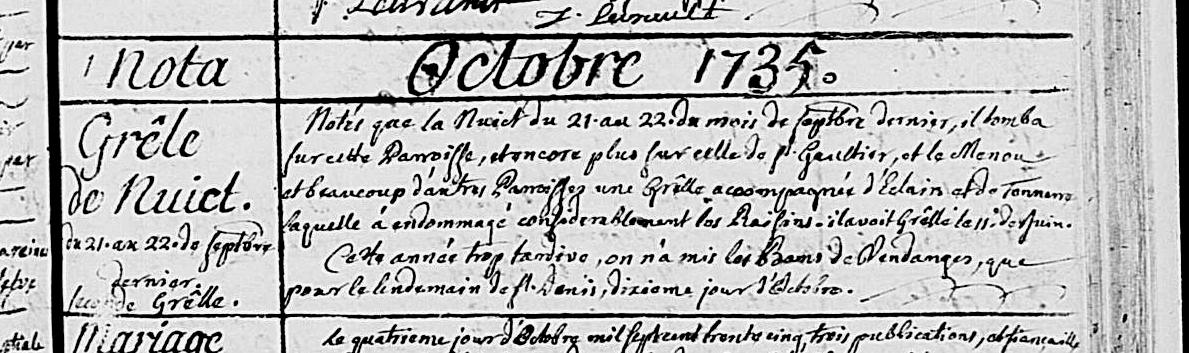 Nota
Octobre 1735.
Grêle
de Nuict.
du 21. au 22. de septbre
dernier.
seconde Grêlle.
Notés que la Nuict du 21. au 22. du mois de septbre dernier, il tomba
sur cette Parroisse, et encore plus sur celle de st. Gaultier, et le Menou
et beaucoup d'autres Parroisses une Grêlle accompagnée d'Eclain et de Tonnerre
laquelle á endommagé considerablement les Raisins. il avoit Grêllé le 11. de Juin.
Cette année trop tardive, on n'á mis les Bans de Vendanges, que
pour le lindemain de st. Denis, dixieme jour d'Octobre.
Mariage
Le quatrieme jour d'Octobre mil sept cent trente cinq, trois publications, et fiançaille